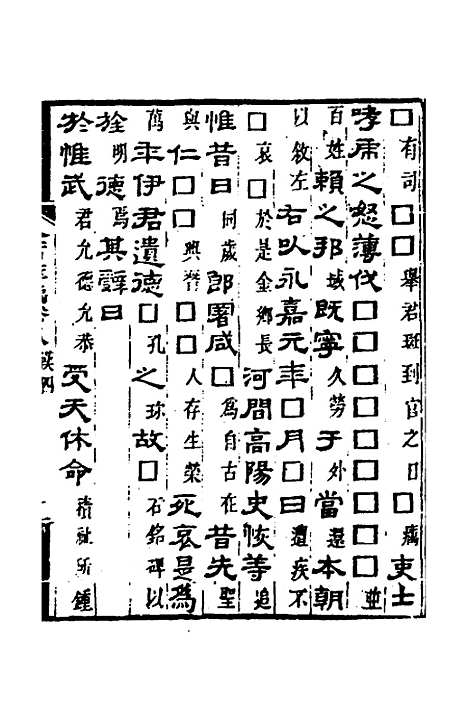 □有司□□舉君斑到官之日□癘吏士
哮虎之怒薄伐□□□□□□□□竝
百姓賴之邦域既寧久勞于外當還本朝
以敘左右以永嘉元年□月□日遭疾不
□哀□於是金鄉長河間高陽史恢等追
惟昔日同歲郎署咸□為自古在昔先聖
與仁□□興替□人存生榮死哀是為
萬年伊君遺德□孔之珎故□石銘碑以
旌明德焉其辭曰
於惟武君允德允恭受天休命積祉所鍾
金石萃編卷八 漢四